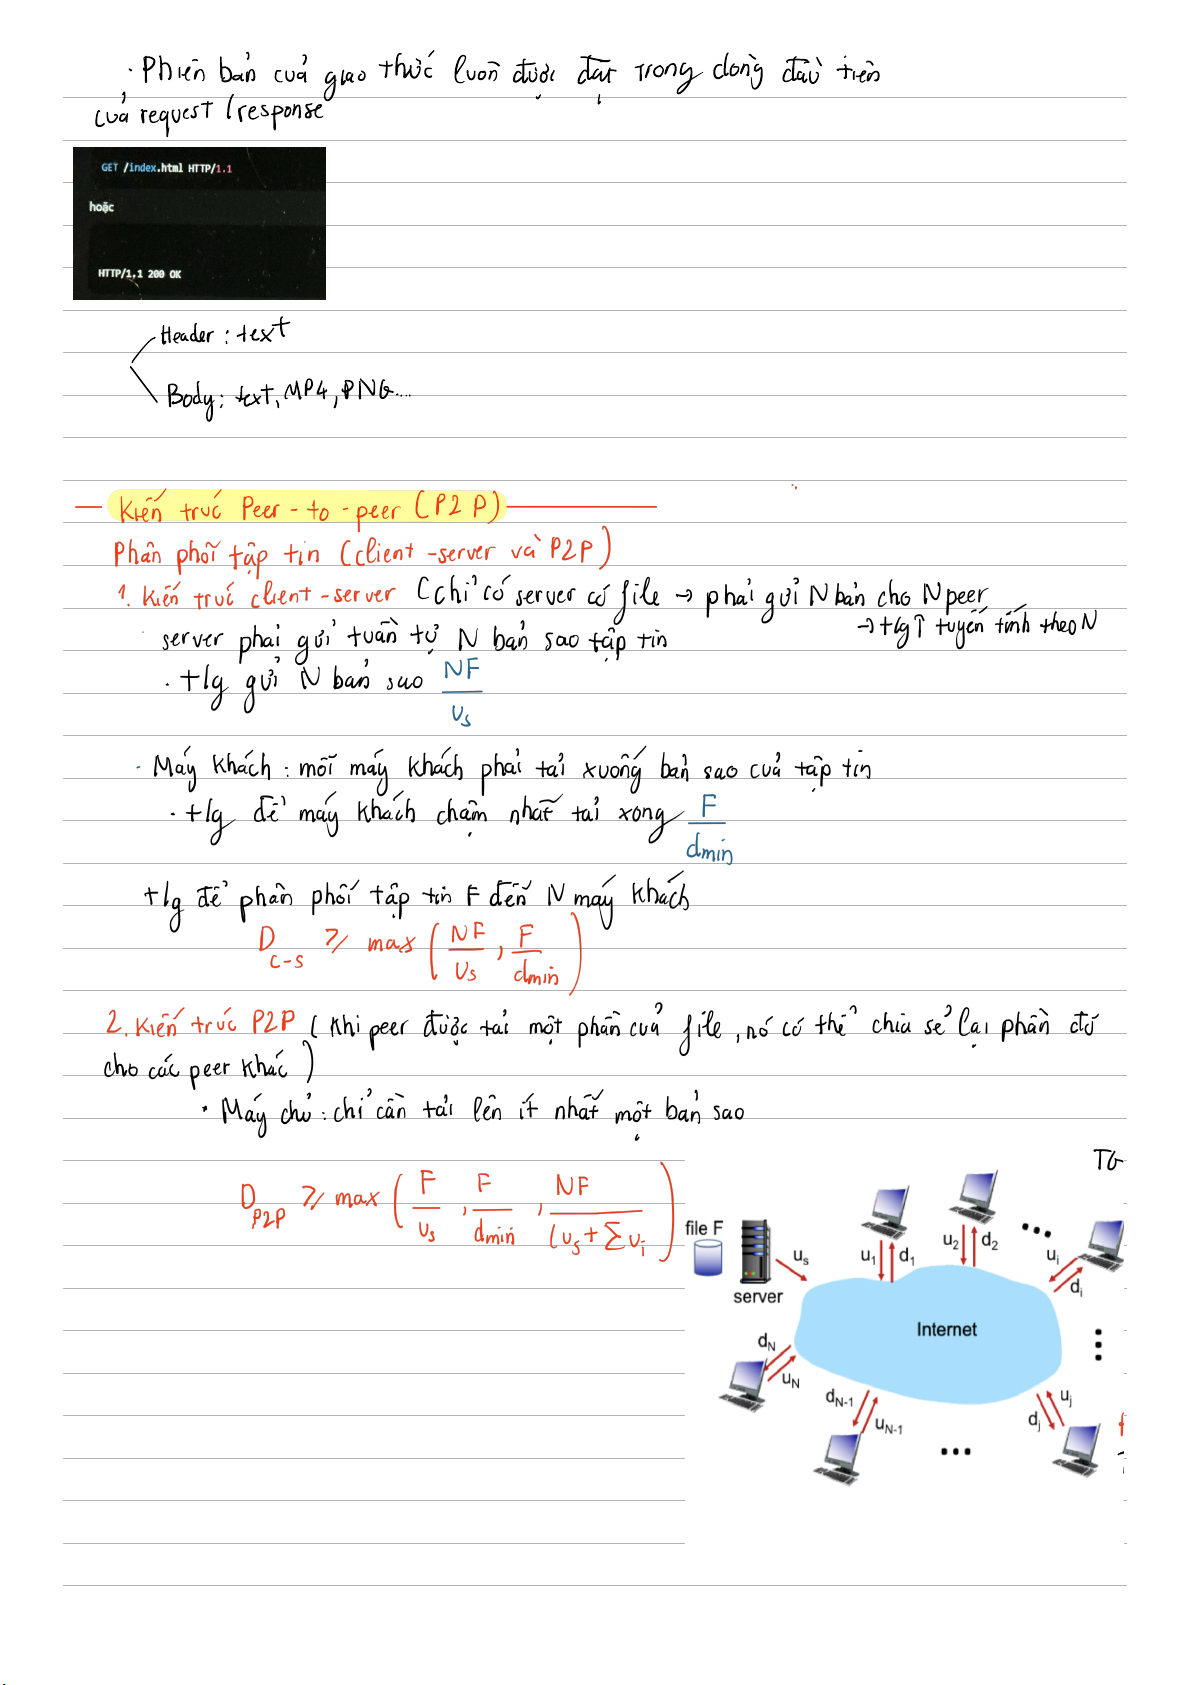 . Phiên bản của giao thức luôn được đặt trong dòng đầu tiên
của request / response
GET /index.html HTTP/1.1
hoặc
HTTP/1.1 200 OK
Header : text
Body : text, MP4, PNG....
Kiến trúc Peer - to - peer ( P2P )
Phân phối tập tin ( client - server và P2P )
1. Kiến trúc client - server ( chỉ có server có file → phải gửi N bản cho N peer
→ tlg ↑ tuyến tính theo N
. server phải gửi tuần tự N bản sao tập tin
. tlg gửi N bản sao NF / us
. Máy khách : mỗi máy khách phải tải xuống bản sao của tập tin
. tlg để máy khách chậm nhất tải xong F / dmin
tlg để phân phối tập tin F đến N máy khách
D c-s ≥ max ( NF / us , F / dmin )
2. Kiến trúc P2P ( Khi peer được tải một phần của file , nó có thể chia sẻ lại phần đó
cho các peer khác )
• Máy chủ : chỉ cần tải lên ít nhất một bản sao
TG
D P2P ≥ max ( F / us , F / dmin , NF / (us + Σ ui )
file F
server
us
u1 d1
u2 d2
ui
di
Internet
dN
uN
dN-1
uN-1
uj
dj